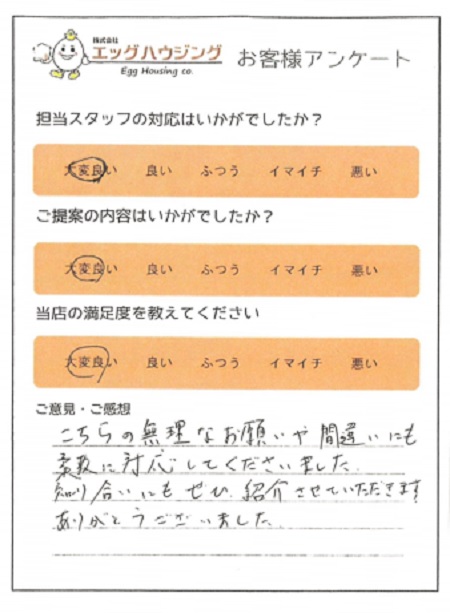 株式会社
エッグハウジング
Egg Housing co.
お客様アンケート
担当スタッフの対応はいかがでしたか？
大変良い 良い ふつう イマイチ 悪い
ご提案の内容はいかがでしたか？
大変良い 良い ふつう イマイチ 悪い
当店の満足度を教えてください
大変良い 良い ふつう イマイチ 悪い
ご意見・ご感想
こちらの無理なお願いや間違いにも
柔軟に対応してくださいました。
知り合いにもぜひ紹介させていただきます
ありがとうございました。